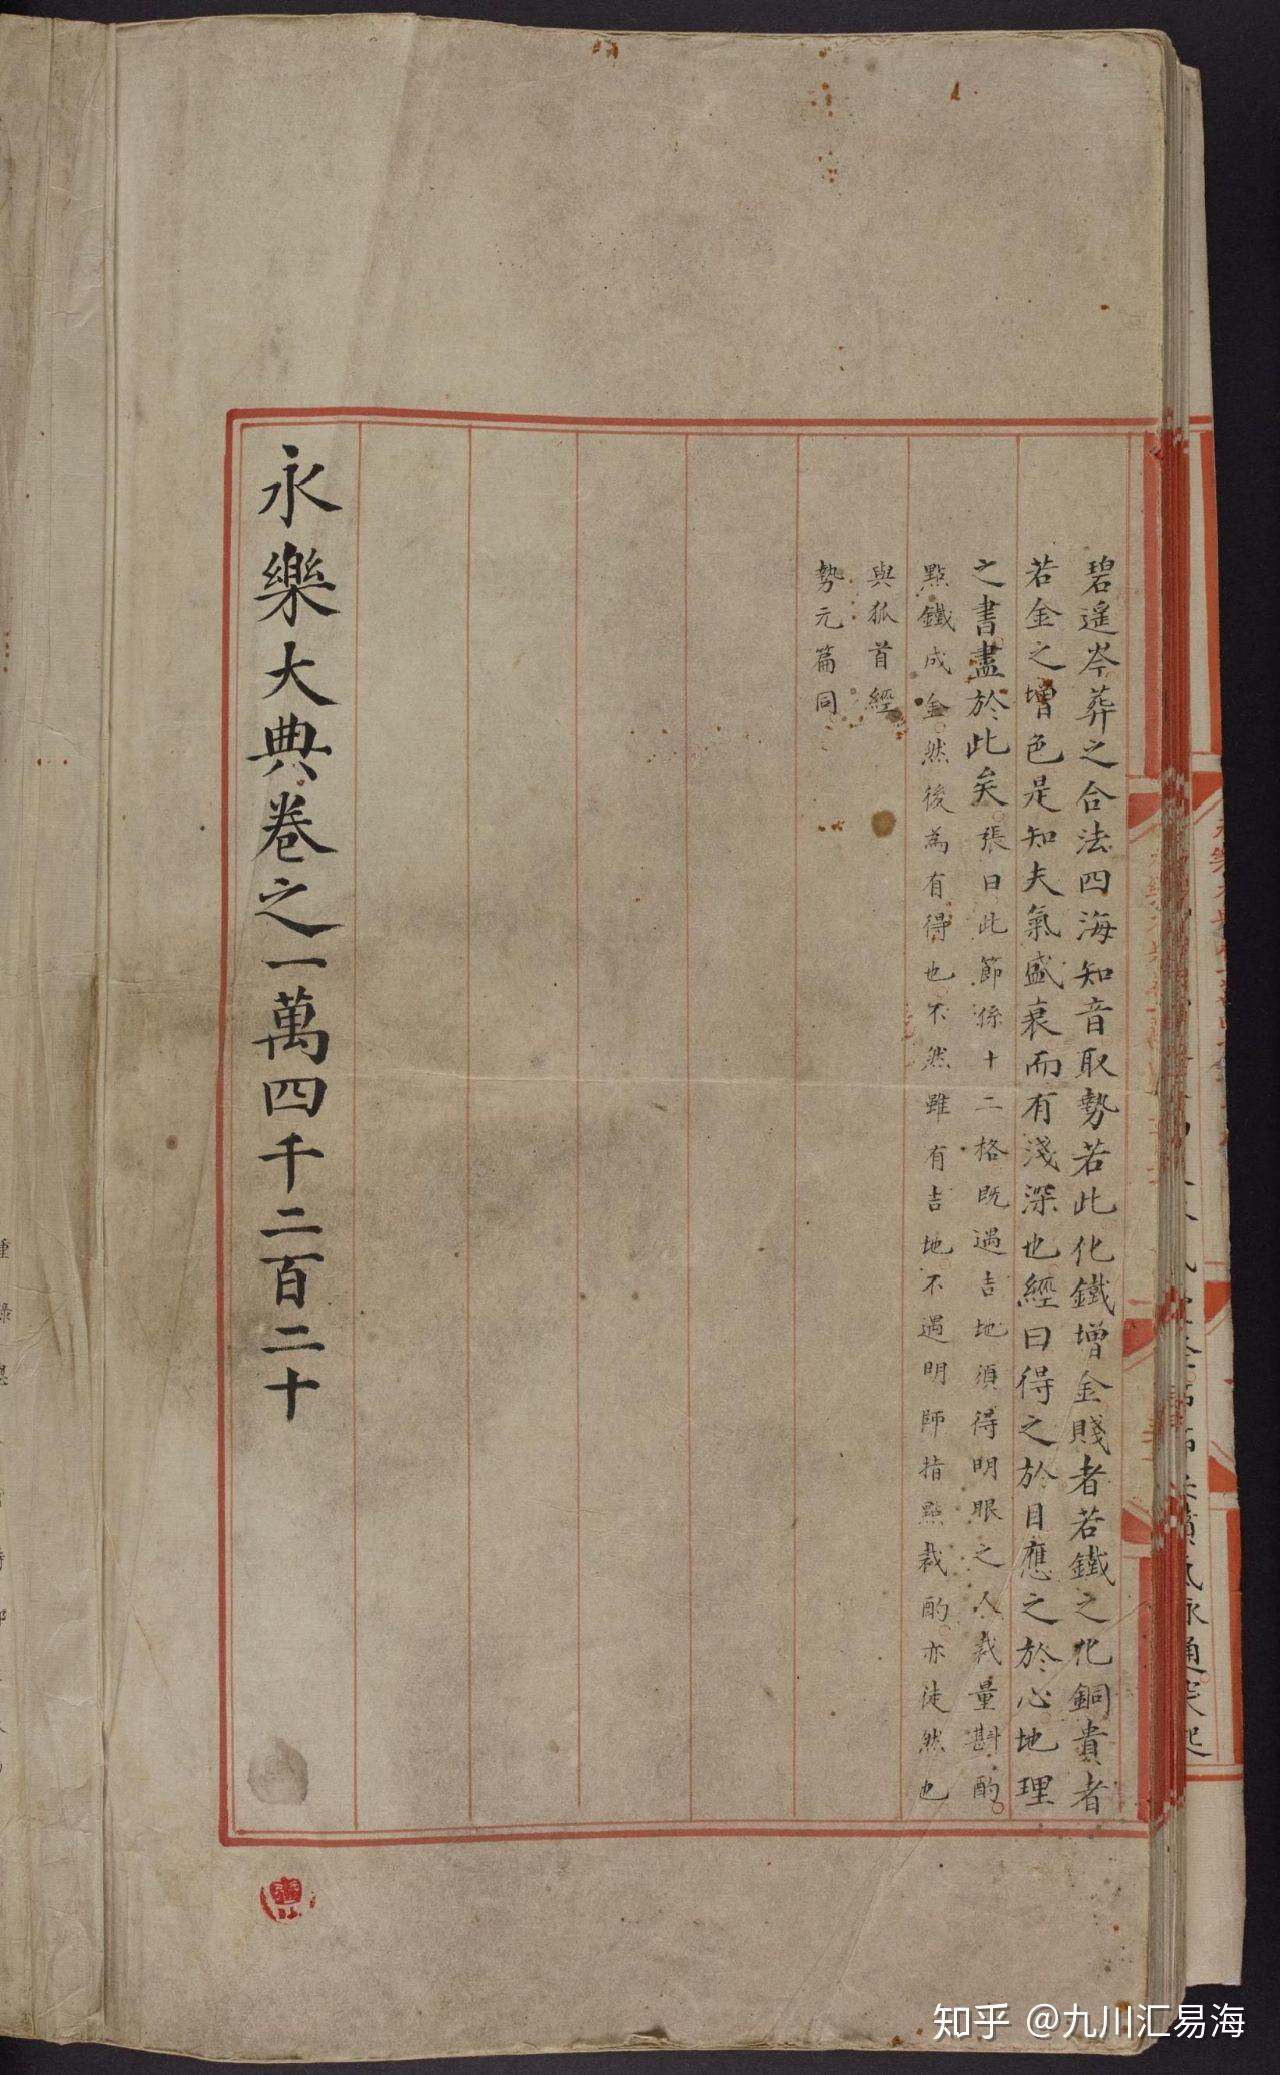 碧遥岑葬之合法四海知音取勢若此化鐵增金賤者若鐵之化銅貴者
若金之增色是知夫氣盛衰而有淺深也經曰得之於目應之於心地理
之書盡於此矣張曰此節係十二格既遇吉地須得明眼之人裁量斟酌
點鐵成金然後為有得也不然雖有吉地不遇明師指點裁酌亦徒然也
與狐首經
勢元篇同
永樂大典卷之一萬四千二百二十
知乎 @九川汇易海